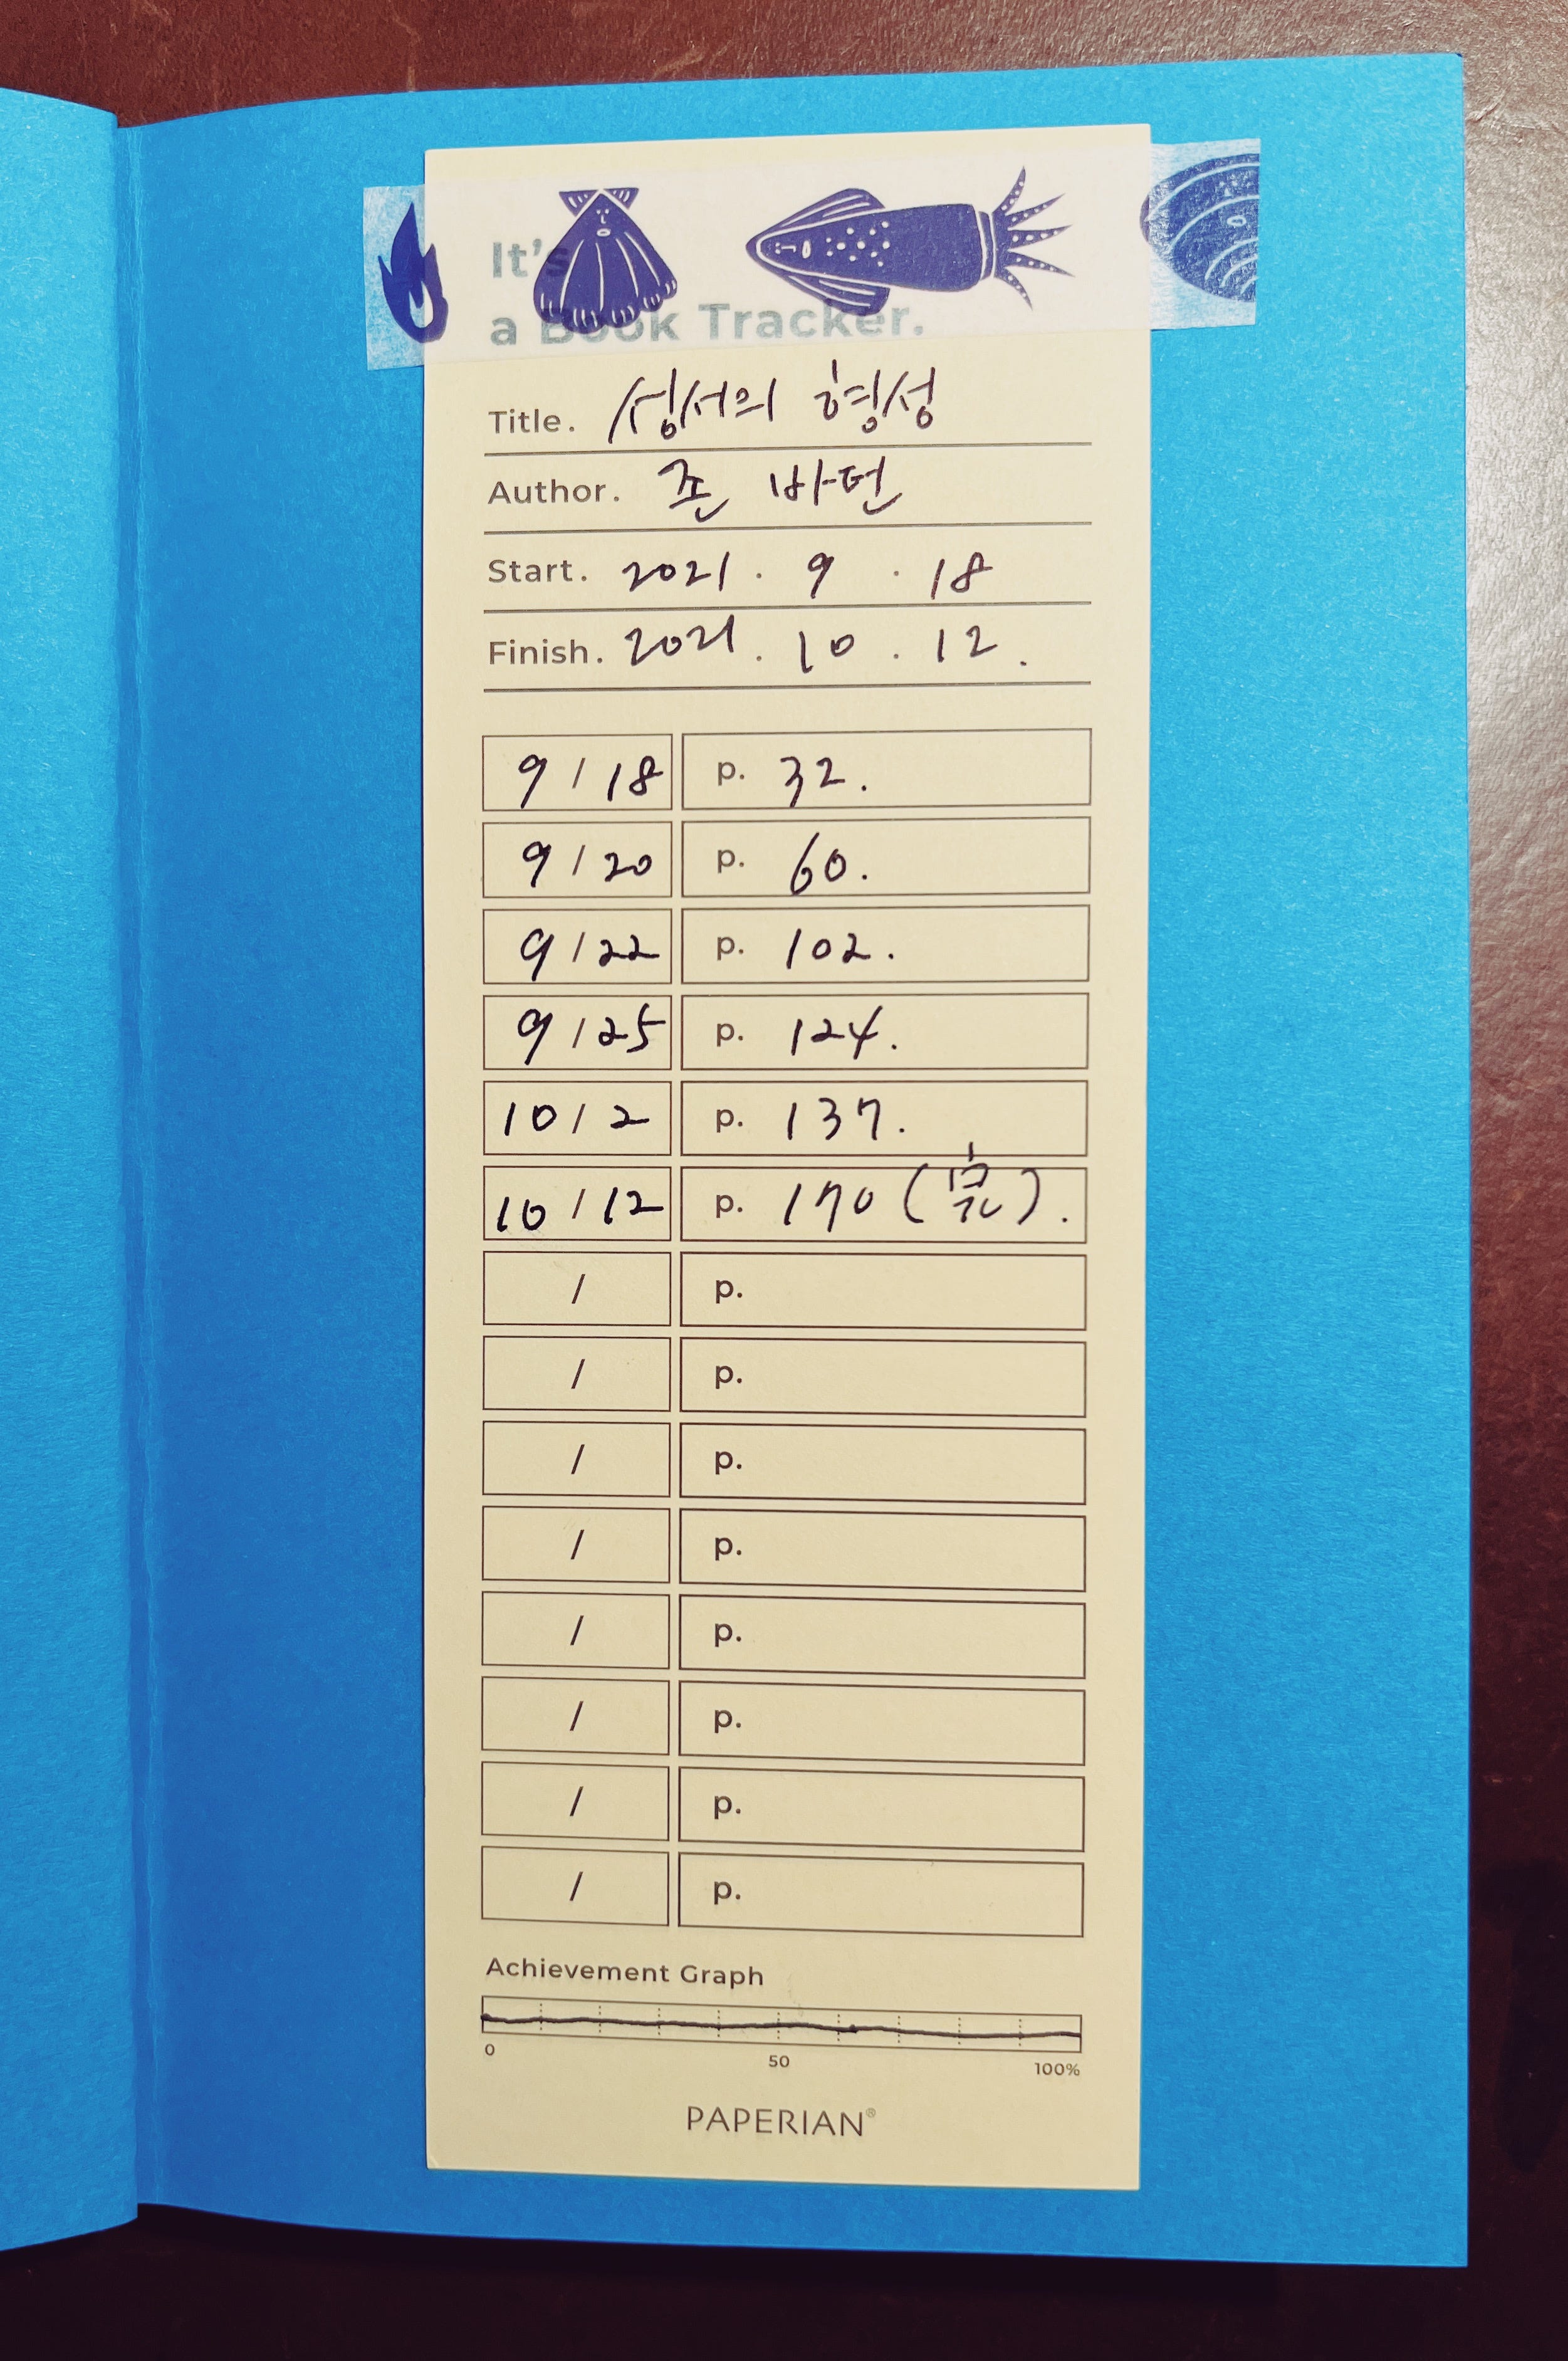 It's
a Book Tracker.
Title. 성서의 형성
Author. 존 바턴
Start. 2021 . 9 . 18
Finish. 2021 . 10 . 12 .
9 / 18 p. 32.
9 / 20 p. 60.
9 / 22 p. 102.
9 / 25 p. 124.
10 / 2 p. 137.
10 / 12 p. 170 (完).
/ p.
/ p.
/ p.
/ p.
/ p.
/ p.
/ p.
/ p.
Achievement Graph
0 50 100%
PAPERIAN®